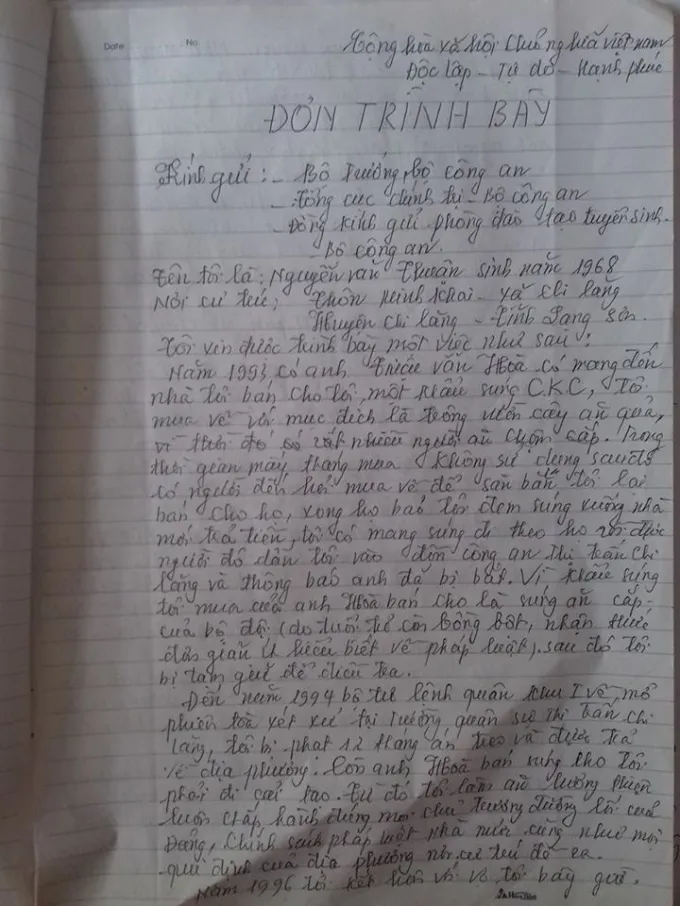 Date No
Cộng hòa xã hội Chủ nghĩa việt nam
Độc lập - Tự do - Hạnh phúc
ĐƠN TRÌNH BÀY
Kính gửi: - Bộ trưởng bộ công an
- tổng cục chính trị - Bộ công an
- Đồng kính gửi phòng đào tạo tuyển sinh -
- Bộ công an.
Tên tôi là: Nguyễn văn Thuận sinh năm 1968
Nơi cư trú; Thôn Minh khai - xã chi lăng
Huyện chi lăng - tỉnh Lạng Sơn.
Tôi xin được trình bày một việc như sau:
Năm 1993 có anh Triệu văn Hoà có mang đến
nhà tôi bán cho tôi, một khẩu súng C.K.C, Tôi
mua về với mục đích là trông vườn cây ăn quả,
vì thời đó có rất nhiều người ăn trộm cắp. Trong
thời gian mấy tháng mua không sử dụng sau đó
có người đến hỏi mua về để săn bắn tôi lại
bán cho họ, xong họ bảo tôi đem súng xuống nhà
mới trả tiền, tôi có mang súng đi theo họ rồi được
người đó dẫn tôi vào đồn công an thị trấn chi
lăng và thông báo anh đã bị bắt. Vì khẩu súng
tôi mua của anh Hoà bán cho là súng ăn cắp
của bộ đội (do tuổi trẻ còn bồng bột, nhận thức
đơn giản ít hiểu biết về pháp luật). sau đó tôi
bị tạm giữ để điều tra.
Đến năm 1994 bộ tư lệnh quân khu I về, mở
phiên toà xét xử tại trường quân sự thị trấn chi
lăng, tôi bị phạt 12 tháng án treo và được trả
về địa phương. Còn anh Hoà bán súng cho tôi
phải đi cải tạo. từ đó tôi làm ăn lương thiện
luôn chấp hành đúng mọi chủ trương đường lối của
Đảng, Chính sách pháp luật nhà nước cũng như mọi
qui định của địa phương nơi cư trú đề ra.
Năm 1996 tôi kết hôn với vợ tôi bây giờ.